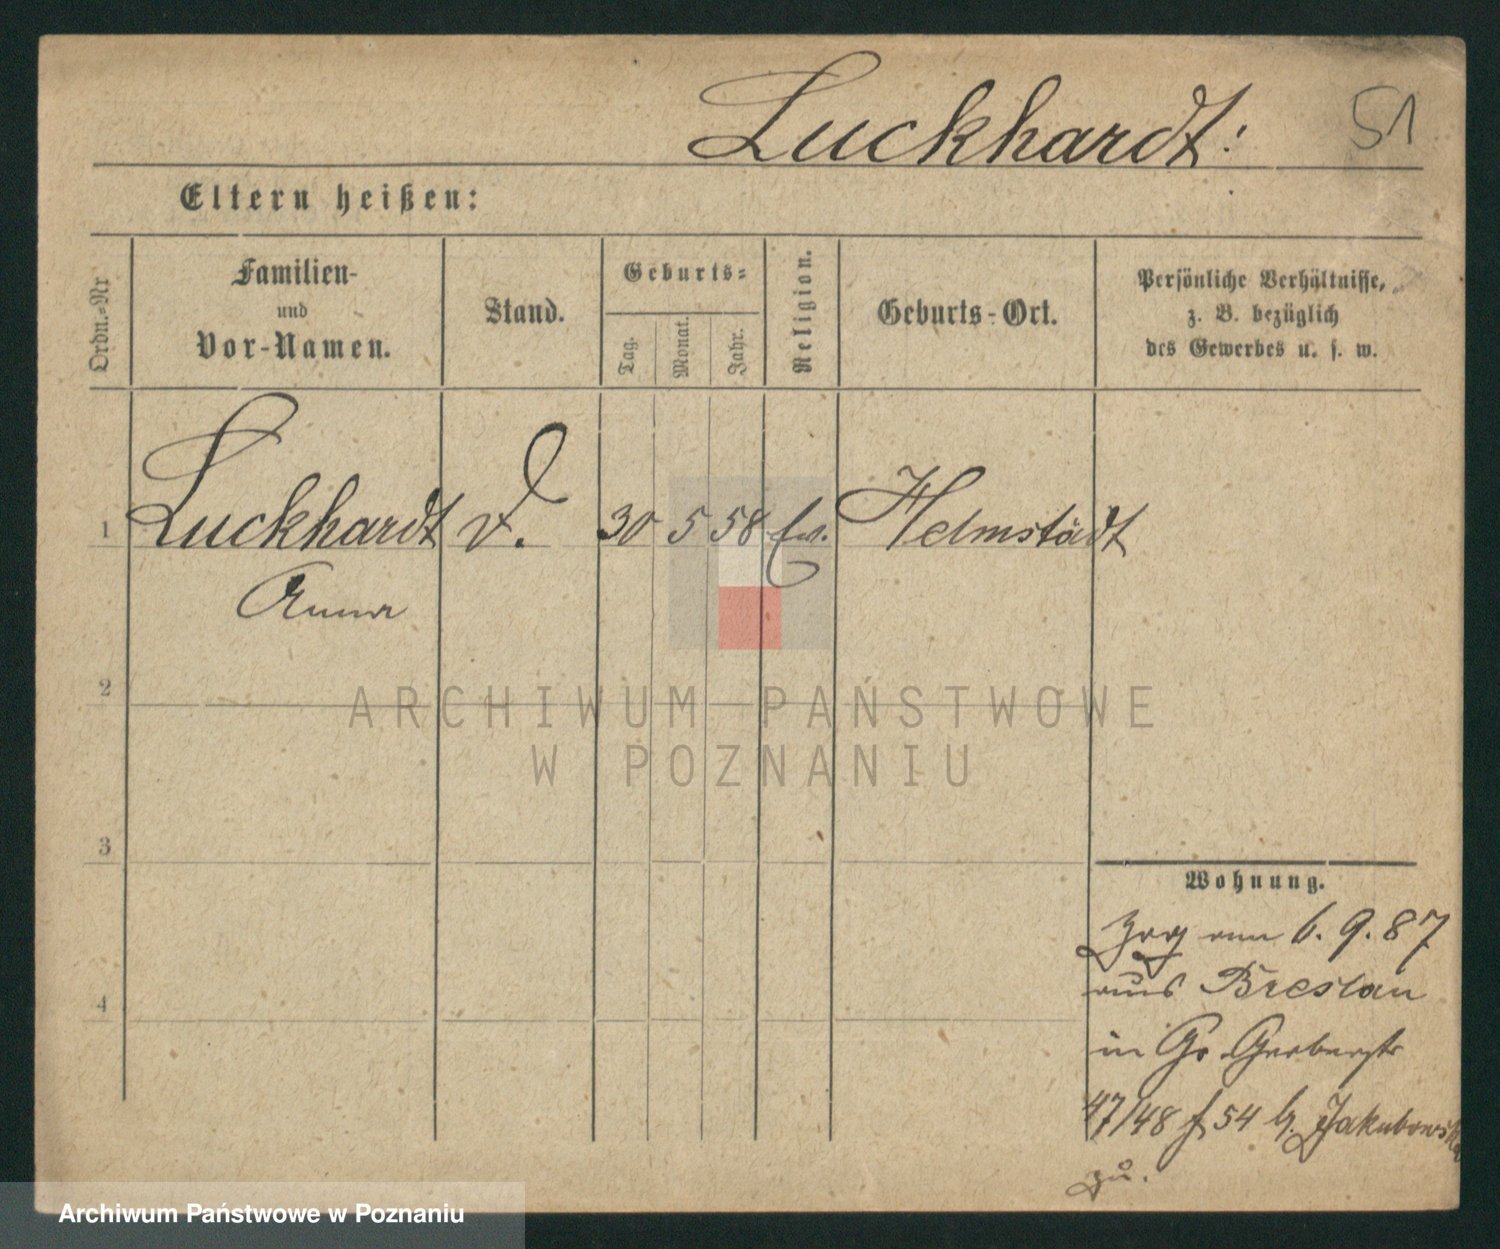 Luckhardt:
51
Eltern heißen:
Ordn.-Nr
Familien-
und
Vor-Namen.
Stand.
Geburts=
Tag.
Monat.
Jahr.
Religion.
Geburts-Ort.
Persönliche Verhältnisse,
z. B. bezüglich
des Gewerbes u. s. w.
1 Luckhardt 30 5 58 Ev. Helmstädt
Anna
2
ARCHIWUM PAŃSTWOWE
W POZNANIU
3
Wohnung.
Zog am 6. 9. 87
aus Breslau
4
in Gr Gerberstr
47/48 f 54 b. Jakubowski
zu.
Archiwum Państwowe w Poznaniu